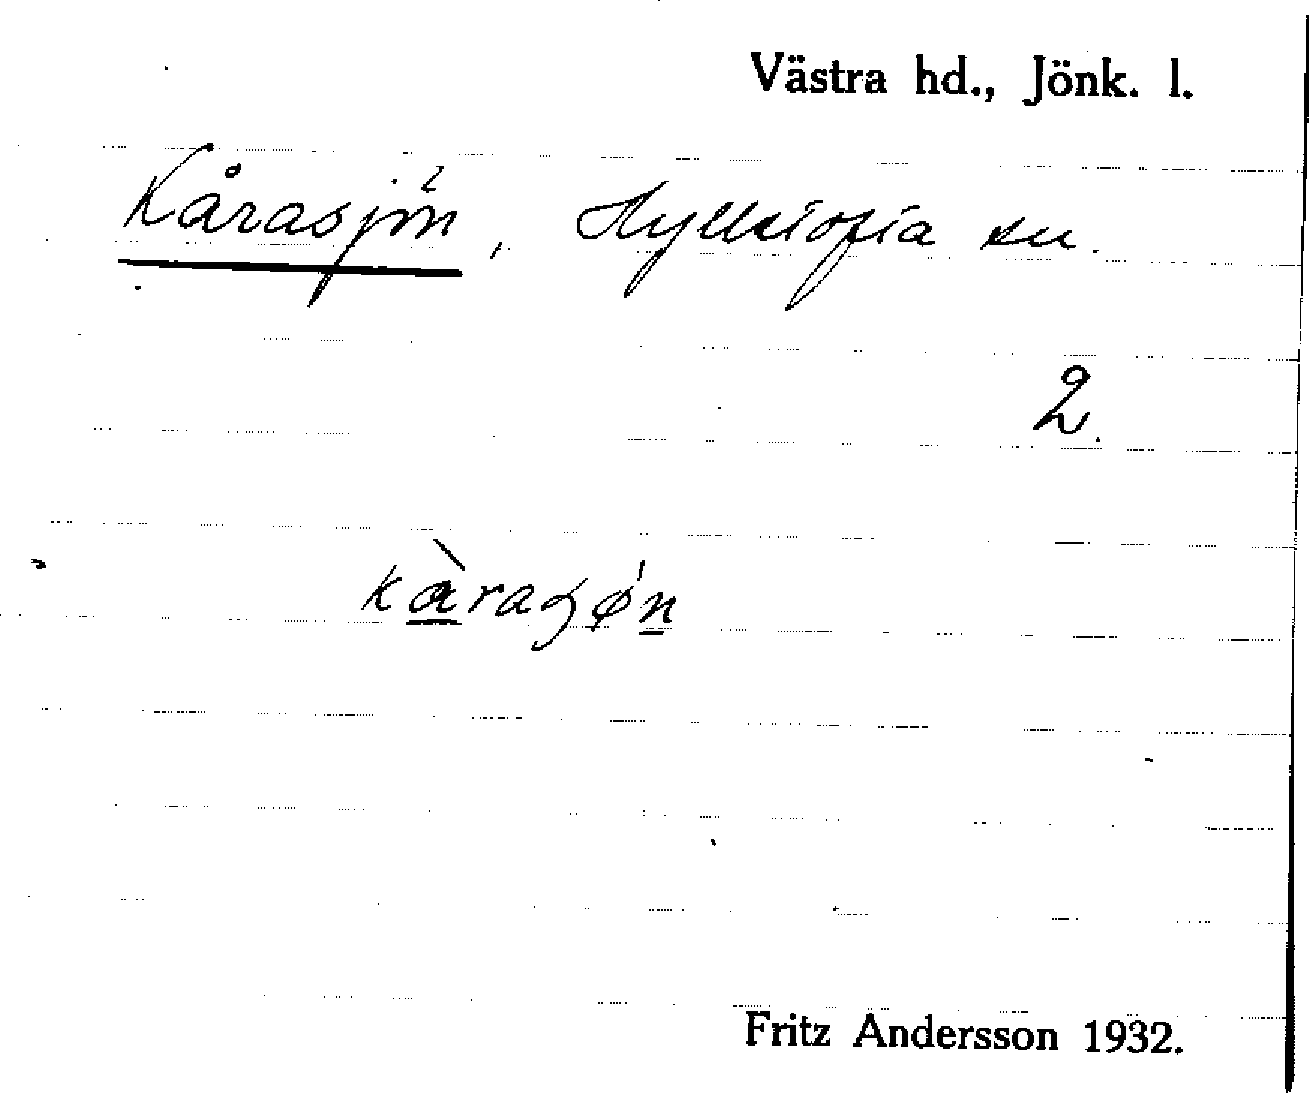 Västra hd., Jönk. l.
Kårasjön, Hylletofta sn.
2.
kàraʒǿn
Fritz Andersson 1932.